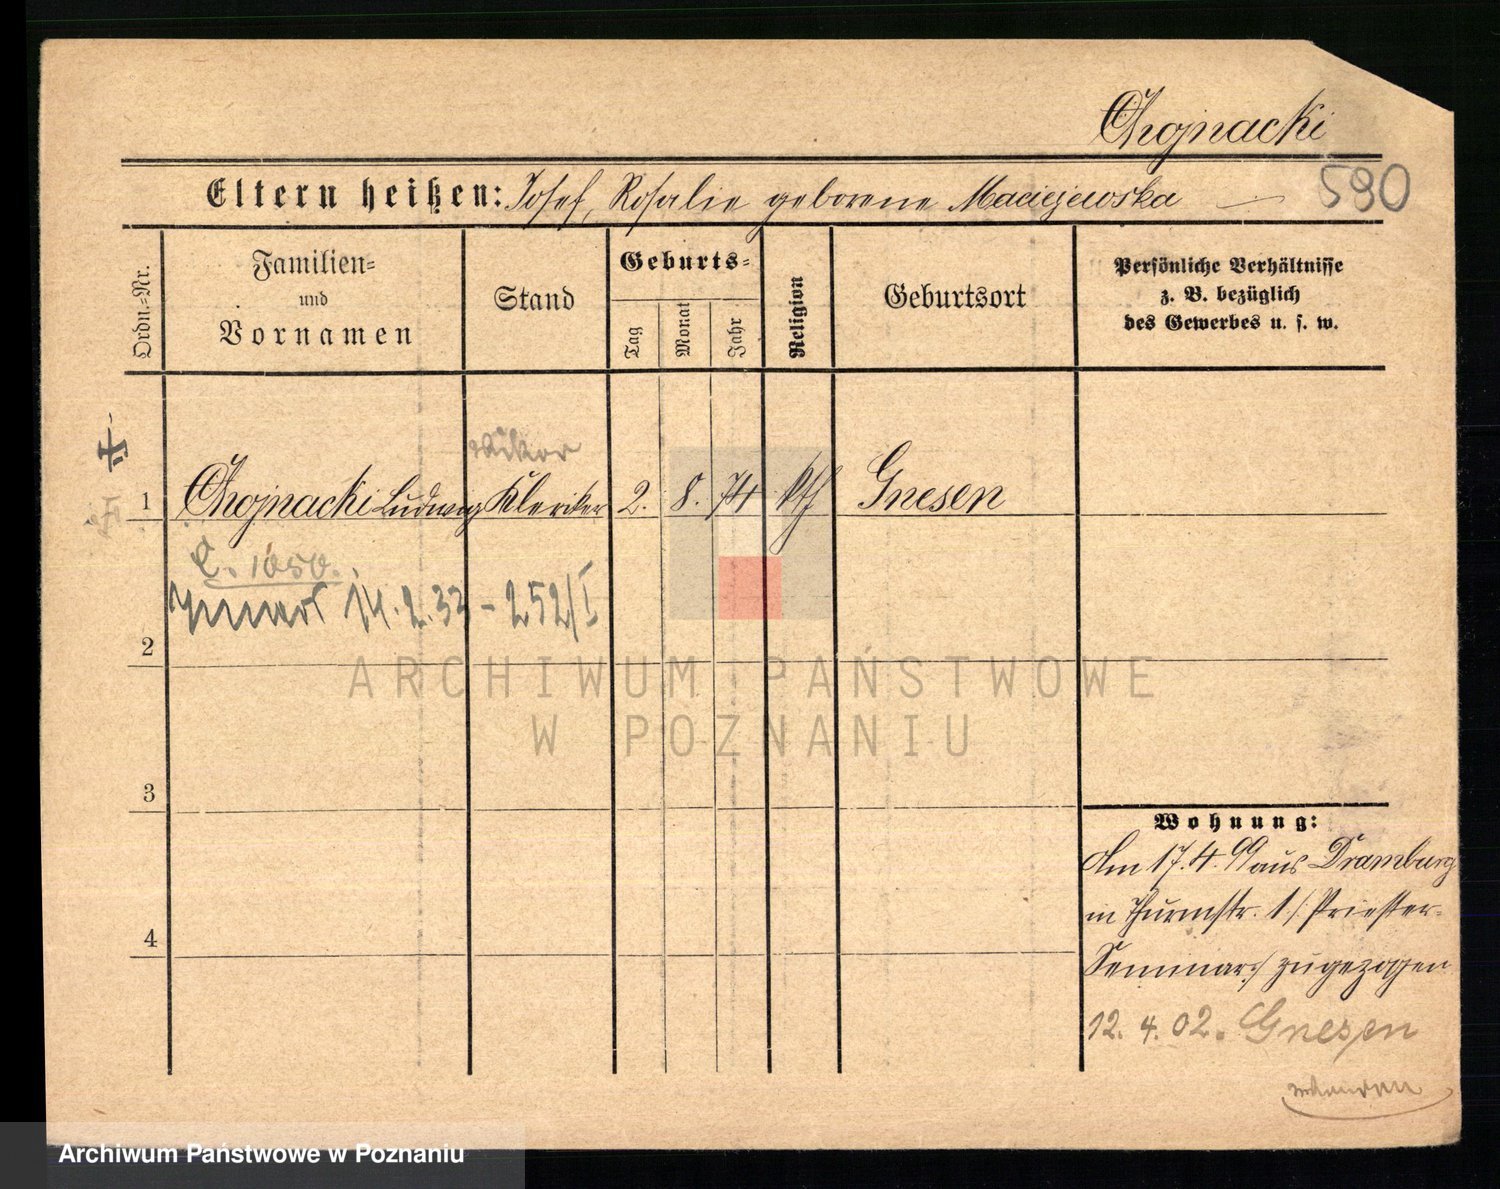 Chojnacki
Eltern heißen: Josef, Rosalie geborene Maciejewska
590
Ordn.-Nr.
Familien-
und
Vornamen
Stand
Geburts-
Tag
Monat
Jahr
Religion
Geburtsort
Persönliche Verhältnisse
z. B. bezüglich
des Gewerbes u. s. w.
Vikar
1 Chojnacki Ludwig Kleriker 2. 8. 74 kth Gnesen
C. 1050.
14.2.33 - 252/I
2
ARCHIWUM PAŃSTWOWE
W POZNANIU
3
Wohnung:
Am 17.4.99 aus Dramburg
in Thurmstr. 1 /: Priester-
Seminar :/ zugezogen
4
12. 4. 02. Gnesen
Archiwum Państwowe w Poznaniu